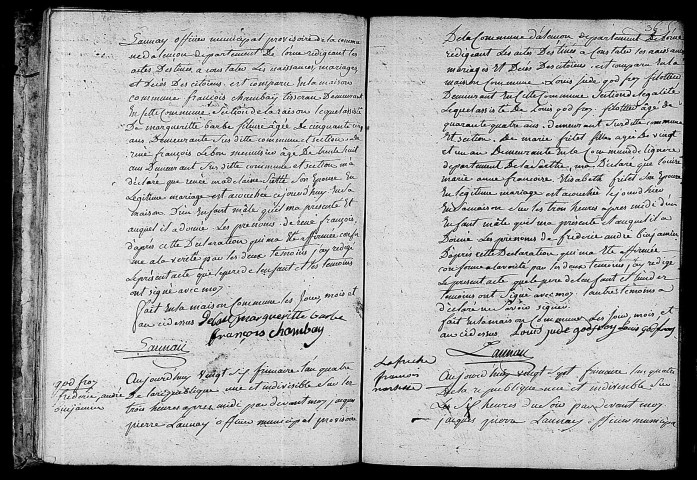 Launay officier municipal provisoire de la commune
d'alencon departement de l'orne redigeant les
actes destinés a constater les naissances, mariages,
et décès des citoiens, est comparu en la maison
commune françois chambay tisseran demeurant
en cette commune section de la raison lequel assisté
de margueritte barbe fileuse âgée de cinquante cinq
ans demeurante susditte commune et section et de
rené françois Lebon menuisier âgé de trente huit
ans demeurant susditte commune et section m'a
déclaré que renée madelaine son epouse en
Legitime mariage est acouchée ce jourd'huy en sa
maison d'un enfant mâle qu'il m'a presenté et
auquel il a donné les prénoms de rené françois,
d'après cette déclaration qui m'a été affirmée confor
me a la verité par les deux temoins j'ay redigé
le présent acte que le pere de l'enfant et les temoins
ont signé avec moy.
fait en la maison commune les jour, mois et
an ci dessus. Lebon margueritte barbe
françois chambay
Launay
god froy
frederic andré
benjamin
Aujourd'huy vingt six frimaire l'an quatre
de la republique une et indivisible sur les
trois heures après midi par devant moy jacques
pierre Launay officier municipal provisoire
36
De la commune d'alencon departement de l'orne
redigeant les actes destinés a constater les naissances
mariages et décès des citoiens est comparu en la
maison commune Louis jude god froy filottier
demeurant en cette commune section de l'egalité
Lequel assisté de Louis god froy filottier âgé de
quarante quatre ans demeurant susditte commune
et section, de marie fretet fille âgée de vingt
et un an demeurante en la commune de ligniere
departement de la sarthe, m'a déclaré que Louise
marie anne françoise Elisabeth fretet son epouse
en legitime mariage est acouchée ce jourd'hier
en sa maison sur les trois heures après midi d'un
enfant mâle qu'il m'a présenté auquel il a
donné les prénoms de frederic andré benjamin
d'après cette déclaration qui m'a été affirmée
conforme a la verité par les deux temoins j'ay redigé
Le présent acte que le pere de l'enfant et l'un des
temoins ont signé avec moy. l'autre temoin a
déclaré ne savoir signer.
fait en la maison commune les jour, mois et
an ci dessus. Louis jude godfroy Louis godfroy
Launay
françois
narcisse
Aujourd'huy vingt sept frimaire l'an quatre
de la republique une et indivisible sur
les six heures du soir par devant moy
jacques pierre Launay officier municipal